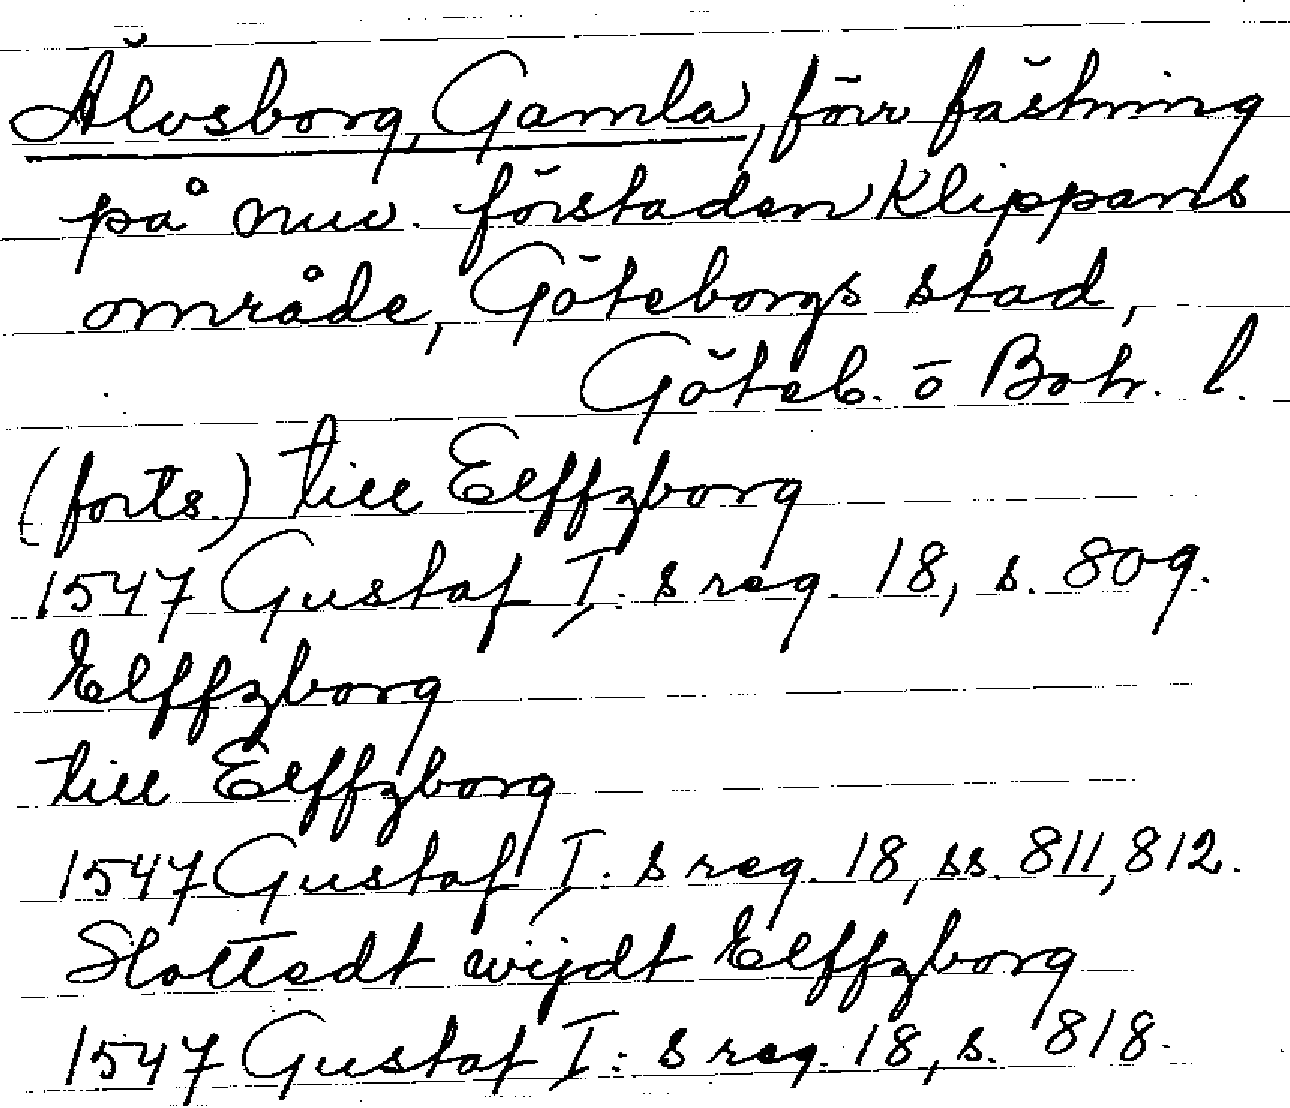 Älvsborg, Gamla, förr fästning
på nuv. förstaden Klippans
område, Göteborgs stad,
Göteb. o Boh. l.
(forts.) till Elffzborg
1547 Gustaf I:s reg. 18, s. 809.
Elffzborg
till Elffzborg
1547 Gustaf I:s reg. 18, ss. 811, 812.
Slottedt wijdt Elffzborg
1547 Gustaf I:s reg. 18, s. 818.